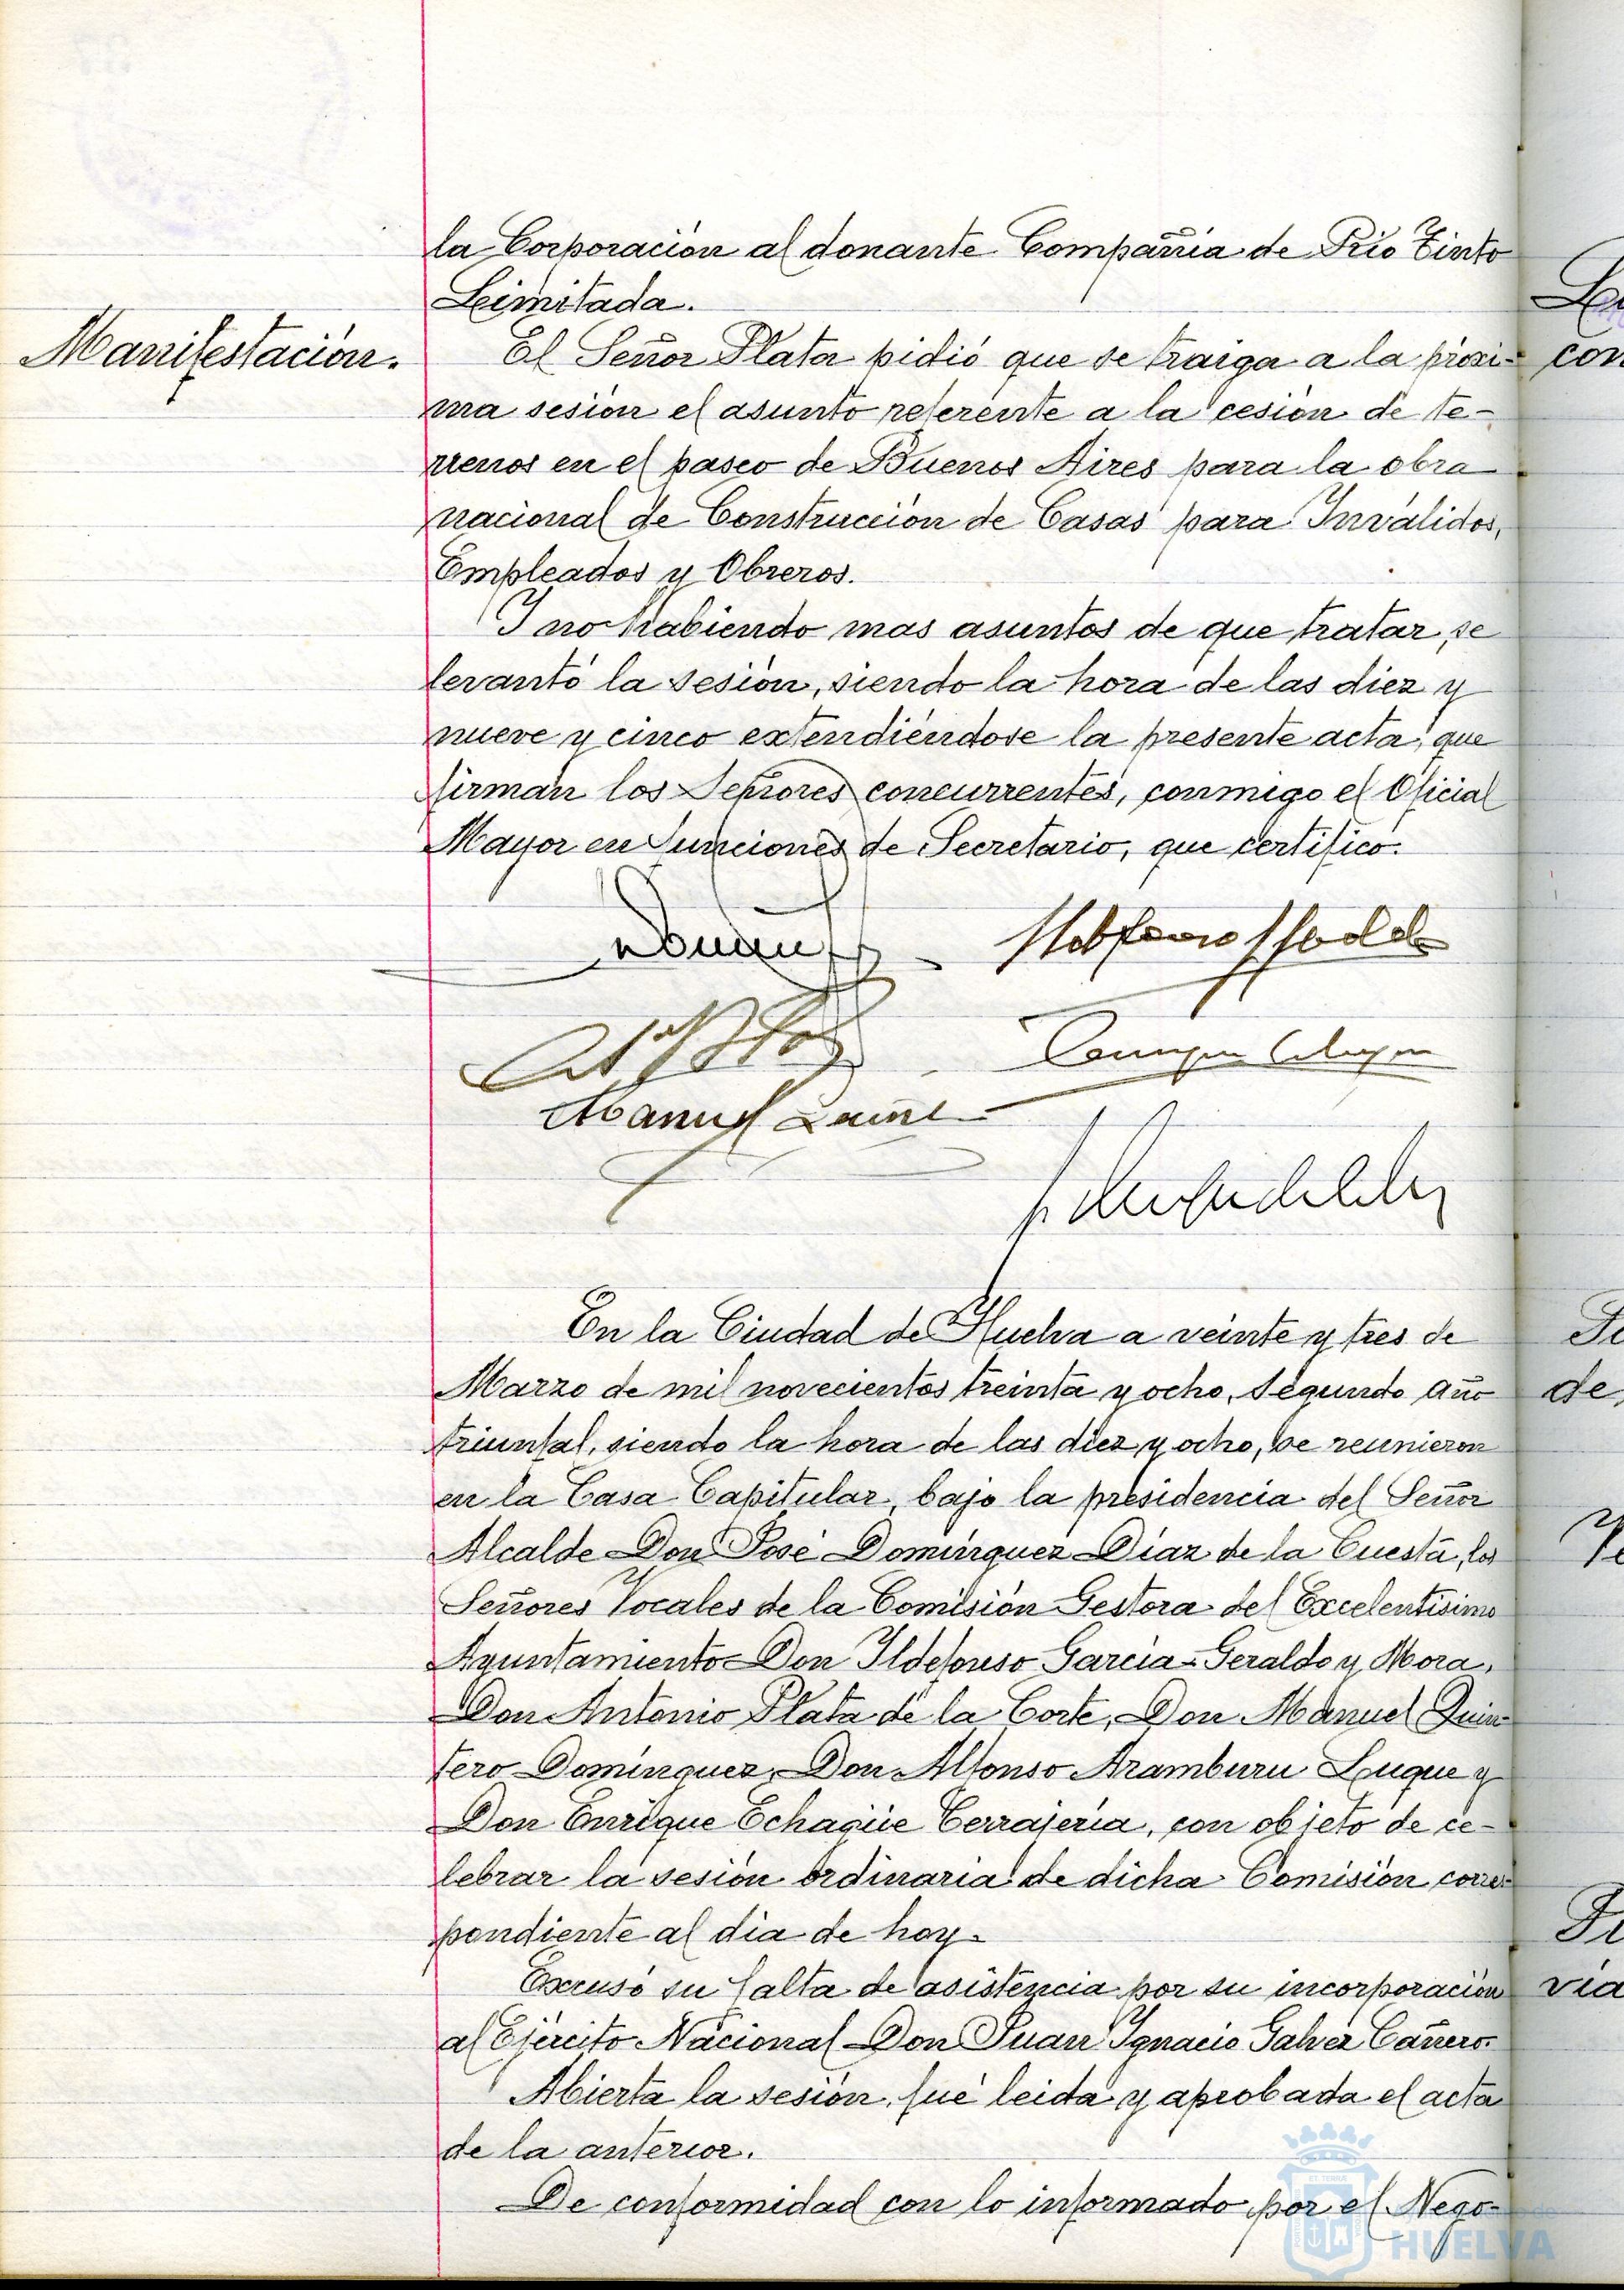 la Corporación al donante Compañia de Rio Tinto
Limitada.
Manifestación.
El Señor Plata pidió que se traiga a la próxi-
ma sesión el asunto referente a la cesión de te-
rrenos en el paseo de Buenos Aires para la obra
nacional de Construcción de Casas para Inválidos,
Empleados y Obreros.
Y no habiendo mas asuntos de que tratar, se
levantó la sesión, siendo la hora de las diez y
nueve y cinco extendiéndose la presente acta, que
firman los Señores concurrentes, conmigo el Oficial
Mayor en funciones de Secretario, que certifico.
Manuel
En la Ciudad de Huelva a veinte y tres de
Marzo de mil novecientos treinta y ocho, segundo año
triunfal, siendo la hora de las diez y ocho, se reunieron
en la Casa Capitular, bajo la presidencia del Señor
Alcalde Don José Dominguez Diaz de la Cuesta, los
Señores Vocales de la Comisión Gestora del Excelentísimo
Ayuntamiento Don Ildefonso Garcia-Geraldo y Mora,
Don Antonio Plata de la Corte, Don Manuel Quin-
tero Dominguez, Don Alfonso Aramburu Luque y
Don Enrique Echagüe Cerrajería, con objeto de ce-
lebrar la sesión ordinaria de dicha Comisión corres-
pondiente al dia de hoy.
Excusó su falta de asistencia por su incorporación
al Ejército Nacional Don Juan Ignacio Galvez Cañero.
Abierta la sesión, fué leida y aprobada el acta
de la anterior.
De conformidad con lo informado por el Nego-
HUELVA